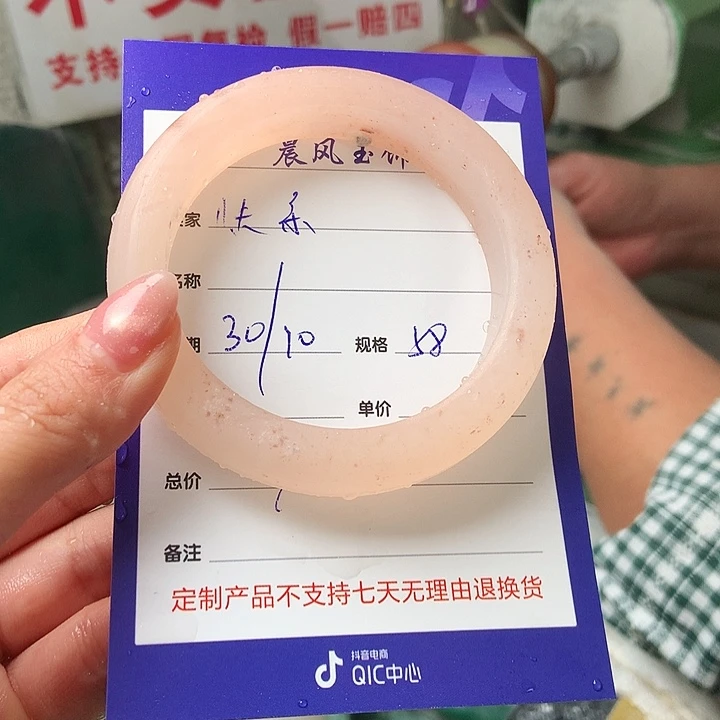 支持 复检 假一赔四
晨风玉饰
家 快乐
名称
期 30/10 规格 58
单价
总价
备注
定制产品不支持七天无理由退换货
抖音电商
QIC中心